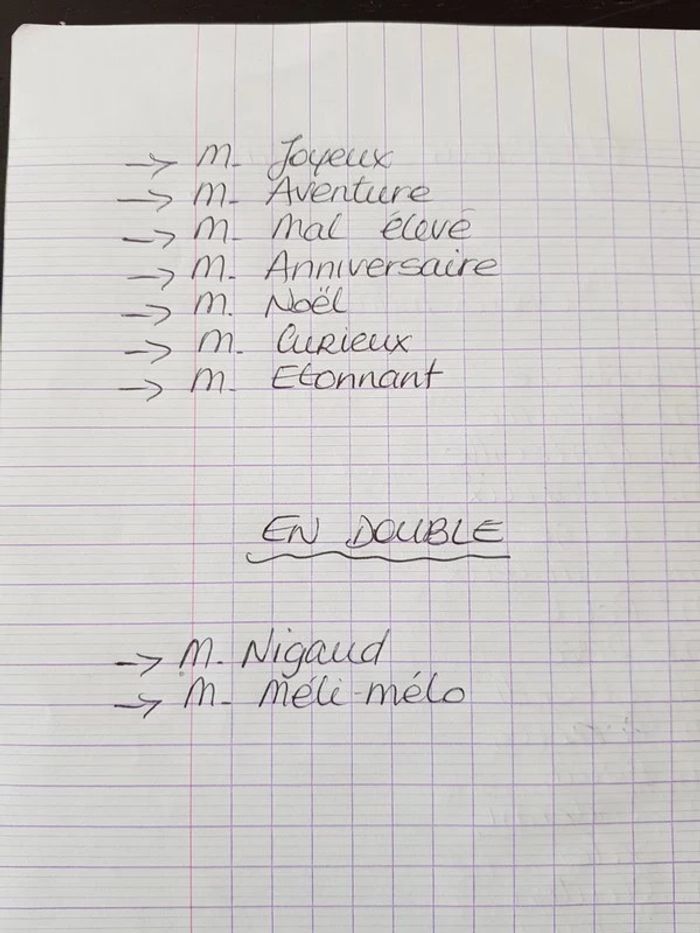 → M. Joyeux
→ M. Aventure
→ M. Mal élevé
→ M. Anniversaire
→ M. Noël
→ M. Curieux
→ M. Etonnant
EN DOUBLE
→ M. Nigaud
→ M. Méli-mélo